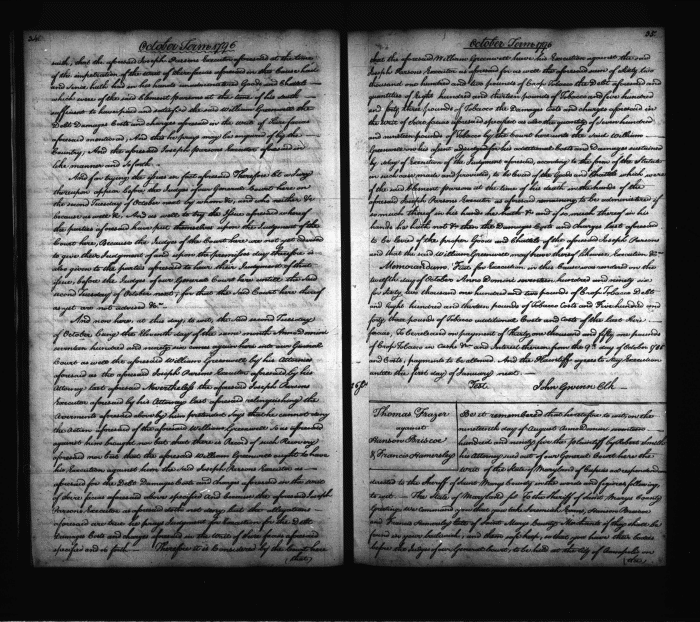 October Term 1796
with, that the aforesaid Joseph Parsons Executor aforesaid at the time
of the impetration of the writ of Scire facias aforesaid in that behalf had
and since hath had in his hands unadministered Goods and Chattels
which were of the said Clement Parsons at the time of his death
sufficient to have paid and satisfied the said William Greenwell the
Debt Damages Costs and charges aforesaid in the writ of Scire facias
aforesaid mentioned, And this he prays may be inquired of by the
Country, And the aforesaid Joseph Parsons Executor aforesaid in
like manner and so forth
And for trying the issue in fact aforesaid Therefore let a Jury
thereupon appear before the Judges of our General Court here on
the second Tuesday of October next by whom &c. and who neither &c.
because as well &c. And as well to try the Issue aforesaid whereof
the parties aforesaid have put themselves upon the Judgment of the
Court here, Because the Judges of the Court here are not yet advised
to give their Judgment of and upon the premises day therefore is
also given to the parties aforesaid to have their Judgment of their
issue, before the Judges of our General Court here until the said
second Tuesday of October next, for that the said Court here thereof
as yet are not advised &c.
And now here at this day, to wit, the said second Tuesday
of October being the Eleventh day of the same month Anno Domini
seventeen hundred and ninety six come again here into our General
Court as well the aforesaid William Greenwell by his Attorney
aforesaid as the aforesaid Joseph Parsons Executor aforesaid by his
Attorney last aforesaid Nevertheless the aforesaid Joseph Parsons
Executor aforesaid by his Attorney last aforesaid relinquishing the
Averments aforesaid above by him pretended Says that he cannot deny
the Action aforesaid of the aforesaid William Greenwell so as aforesaid
against him brought nor but that there is Record of such Recovery
aforesaid nor but that the aforesaid William Greenwell ought to have
his Execution against him the said Joseph Parsons Executor as
aforesaid for the Debt Damages Costs and charges aforesaid in the writ
of Scire facias aforesaid above specified
Parsons Executor as aforesaid doth not deny but the allegations
aforesaid are true he prays Judgment for Execution for the Debt
Damages Costs and charges aforesaid in the writ of Scire facias aforesaid
specified and so forth Therefore it is considered by the Court here
(that)
October Term 1796
that the aforesaid William Greenwell have his Execution against the said
Joseph Parsons Executor as aforesaid for as well the aforesaid sum of sixty two
thousand one hundred and two pounds of Crop Tobacco the Debt aforesaid and
quantities of Eight hundred and thirteen pounds of Tobacco and five hundred
and forty three pounds of Tobacco the Damages Costs and charges aforesaid in
the writ of Scire facias aforesaid specified as also the quantity of seven hundred
and nineteen pounds of Tobacco by the Court here unto the said William
Greenwell on his assent adjudged for his additional Costs and Damages sustained
by delay of Execution of the Judgment aforesaid, according to the form of the Statute
in such case, made and provided, to be levied of the Goods and Chattels which were
of the said Clement Parsons at the time of his death in the hands of the
aforesaid Joseph Parsons Executor as aforesaid remaining to be administered if
so much thereof in his hands he hath &c and if so much thereof in his
hands he hath not &c then the Damages Costs and charges last aforesaid
to be levied of the proper Goods and Chattels of the aforesaid Joseph Parsons
and that the said William Greenwell may have thereof likewise Execution &c.
Memorandum. Fiat for Execution in this Cause was entered on the
twelfth day of October Anno Domini seventeen hundred and ninety six
for sixty two thousand one hundred and two pounds of Crop Tobacco Debt
and Eight hundred and thirteen pounds of Tobacco Costs and Five hundred and
forty three pounds of Tobacco additional Costs and Costs of the last Scire
facias, To be released on payment of thirty one thousand and fifty one pounds
of Crop Tobacco in Casks &c. and Interest thereon from the 9th day of October 1785
and Costs, payments to be allowed. And the Plaintiff agrees to stay Execution
until the first day of January next.
Test John Gwinn Clk
Thomas Frazer
against
Hanson Briscoe
& Francis Hamersley
Be it remembered that heretofore to wit, on the
nineteenth day of August Anno Domini seventeen
hundred and ninety five the plaintiff by Robert Smith
his Attorney sued out of our General Court here the
writ of the State of Maryland of Capias ad respondendum
directed to the Sheriff of Saint Marys County in the words and figures following
to wit. The State of Maryland sct. To the Sheriff of Saint Marys County
Greeting we command you that you take Hanson Briscoe
and Francis Hamersley late of Saint Marys County if they shall be
found in your bailiwick, and them safe keep, so that you have their bodies
before the Judges of our General Court, to be held at the City of Annapolis on
(the)